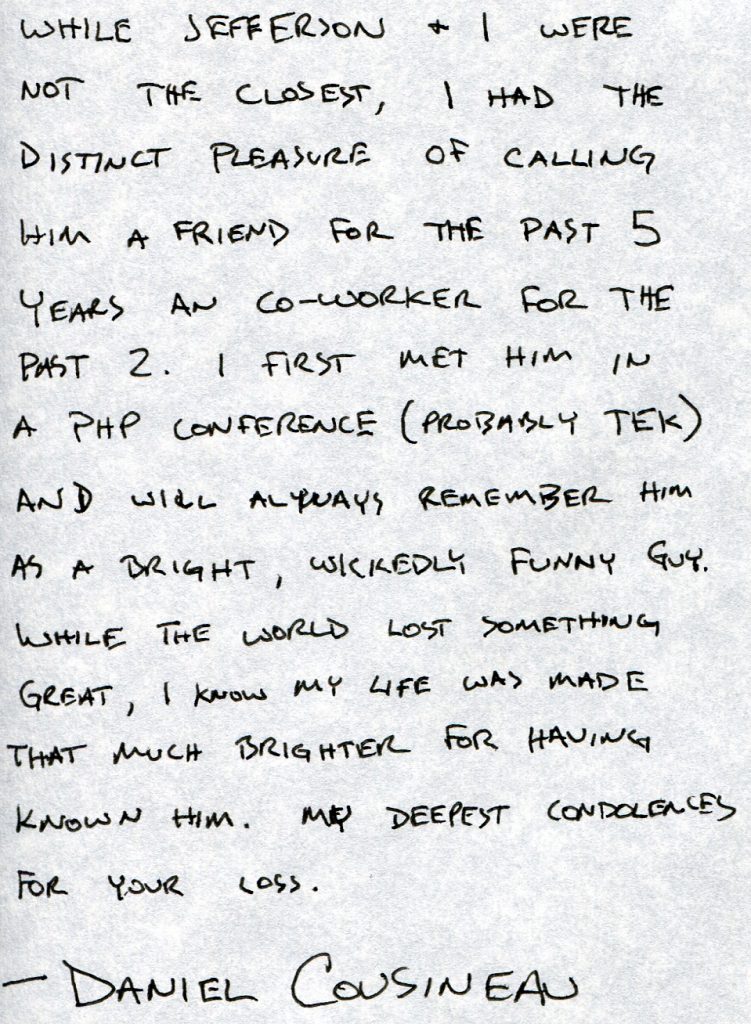 WHILE JEFFERSON + I WERE
NOT THE CLOSEST, I HAD THE
DISTINCT PLEASURE OF CALLING
HIM A FRIEND FOR THE PAST 5
YEARS AN CO-WORKER FOR THE
PAST 2. I FIRST MET HIM IN
A PHP CONFERENCE (PROBABLY TEK)
AND WILL ALWAYS REMEMBER HIM
AS A BRIGHT, WICKEDLY FUNNY GUY.
WHILE THE WORLD LOST SOMETHING
GREAT, I KNOW MY LIFE WAS MADE
THAT MUCH BRIGHTER FOR HAVING
KNOWN HIM. MY DEEPEST CONDOLENCES
FOR YOUR LOSS.
— DANIEL COUSINEAU